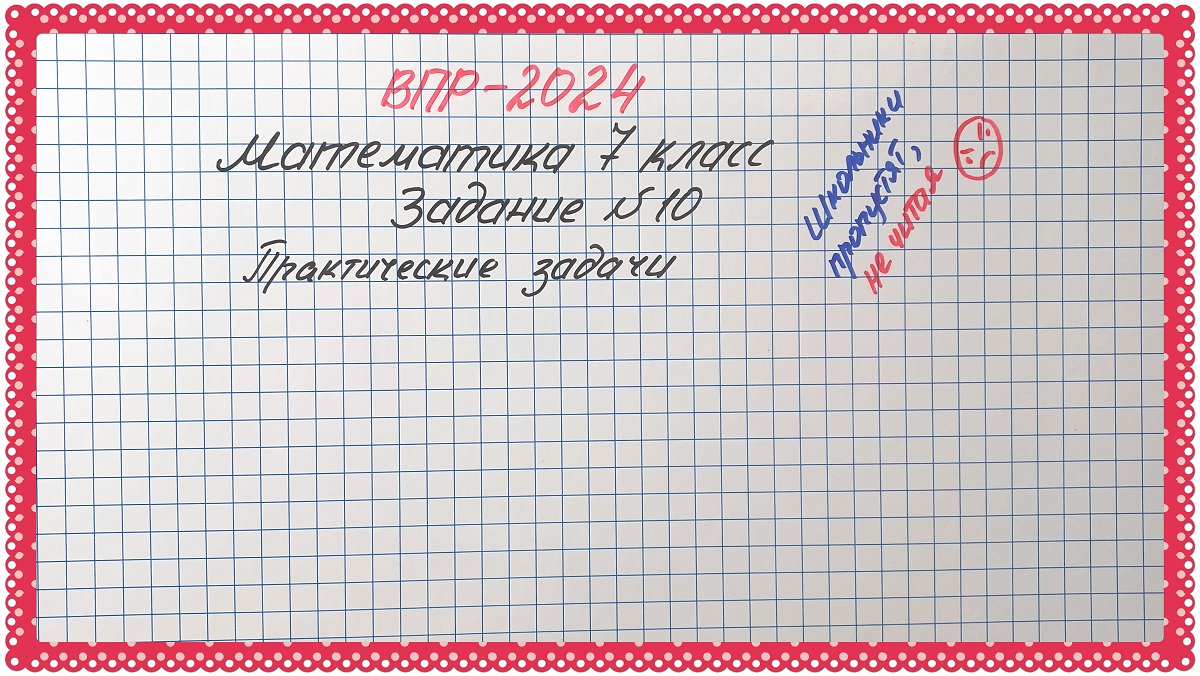 ВПР-2024
Математика 7 класс
Задание №10
Практические задачи
Школьники
пропустят,
не читая